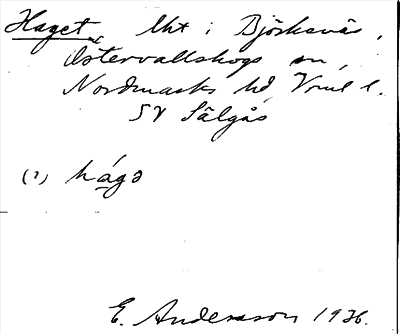 Haget, lht i Björksvås,
Östervallskogs sn,
Nordmarks hd Vrml l.
SV Sälgås
(1) hágə
E. Andersson 1936.